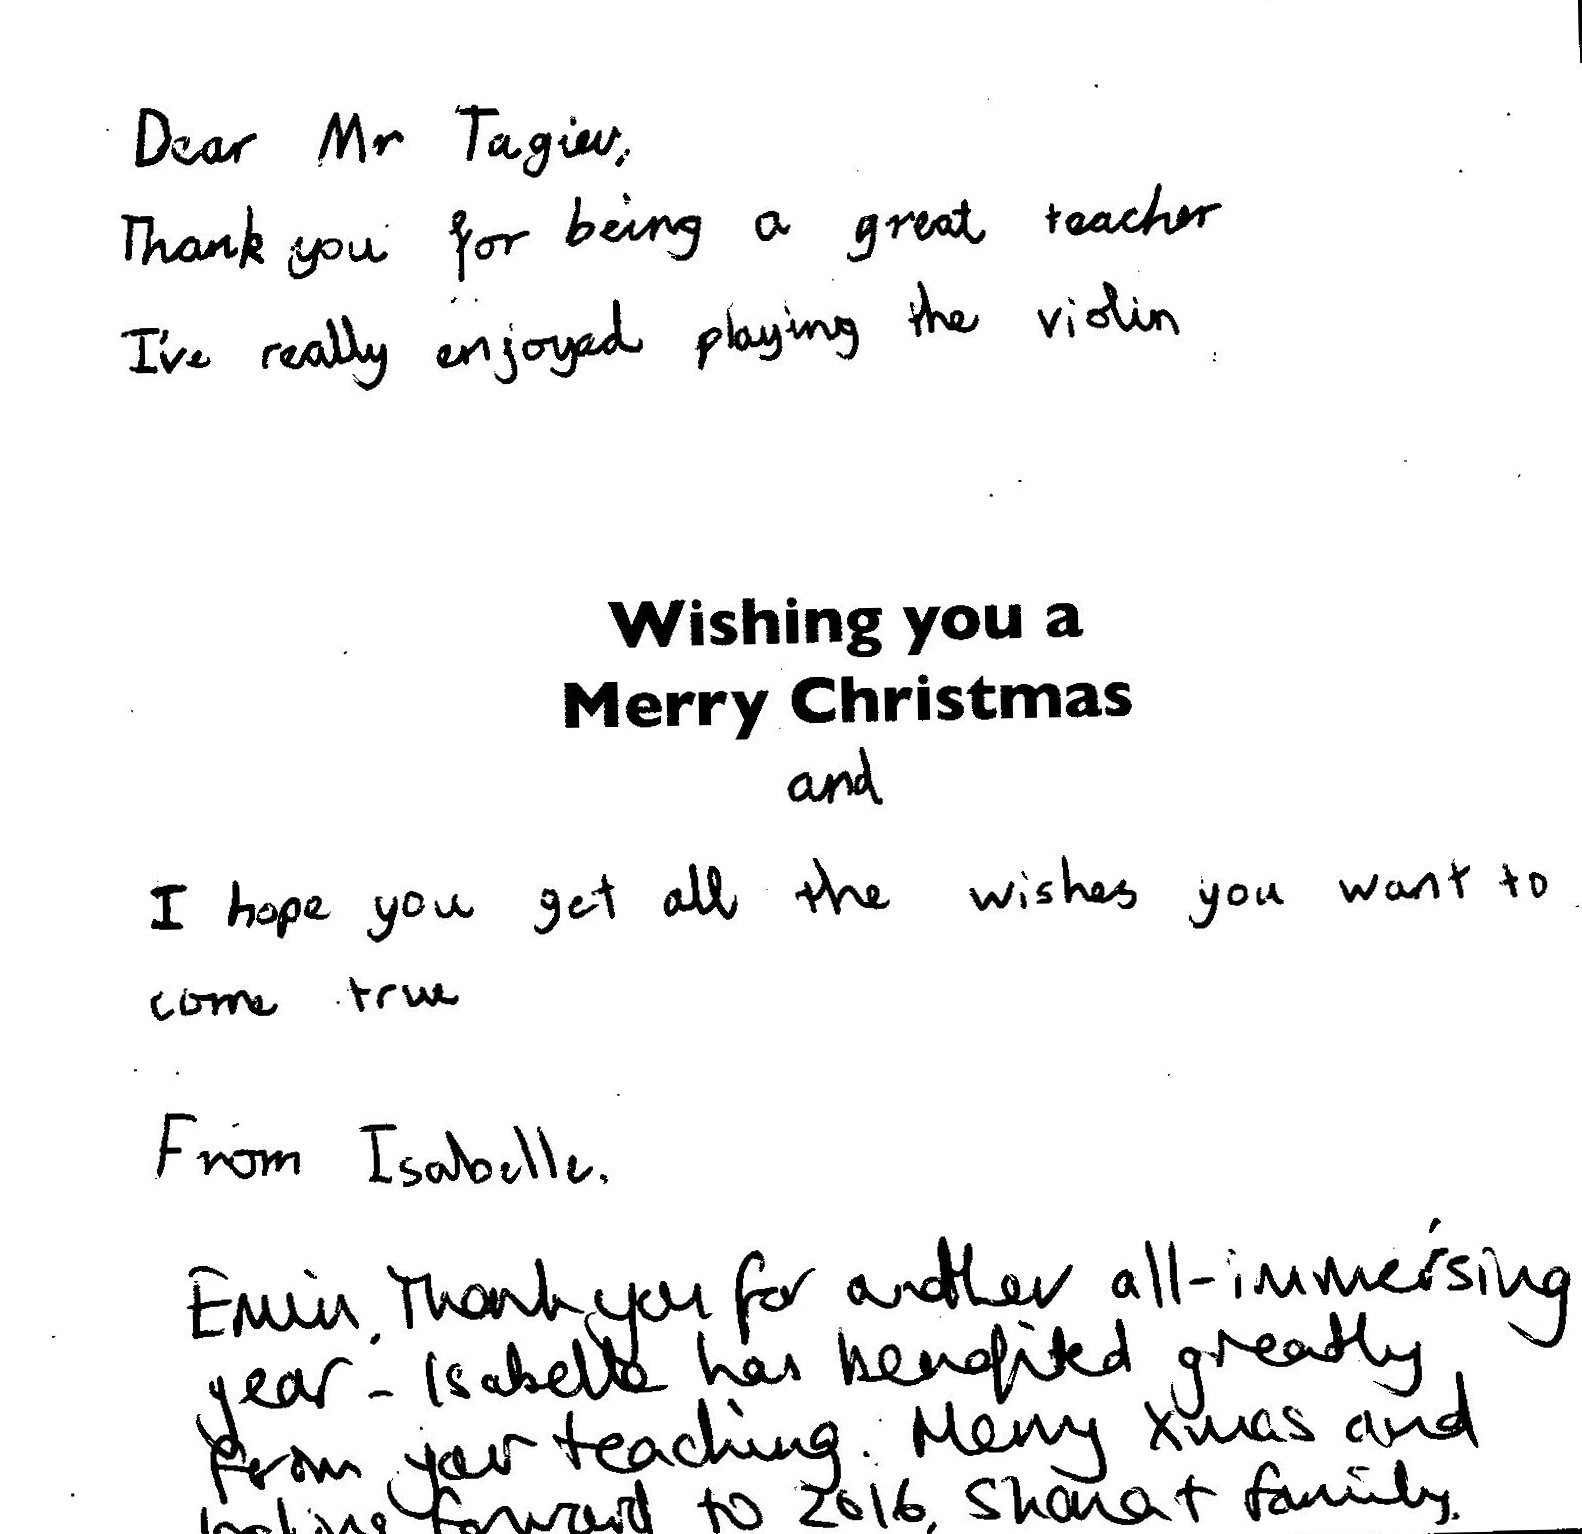 Dear Mr Tagiev,
Thank you for being a great teacher
I've really enjoyed playing the violin
Wishing you a
Merry Christmas
and
I hope you get all the wishes you want to
come true
From Isabelle.
Emin, Thank you for another all-immersing
year - Isabelle has benefited greatly
from your teaching. Merry Xmas and
looking forward to 2016, + family.